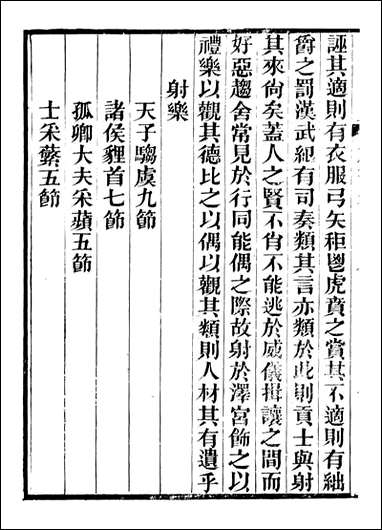 誣其適則有衣服弓矢秬鬯虎賁之賞其不適則有絀
爵之罰漢武紀有司奏類其言亦類於此則貢士與射
其來尙矣蓋人之賢不肖不能逃於威儀揖讓之間而
好惡趨舍常見於行同能偶之際故射於澤宮飾之以
禮樂以觀其德比之以偶以觀其類則人材其有遺乎
射樂
天子騶虞九節
諸侯貍首七節
孤卿大夫采蘋五節
士采蘩五節